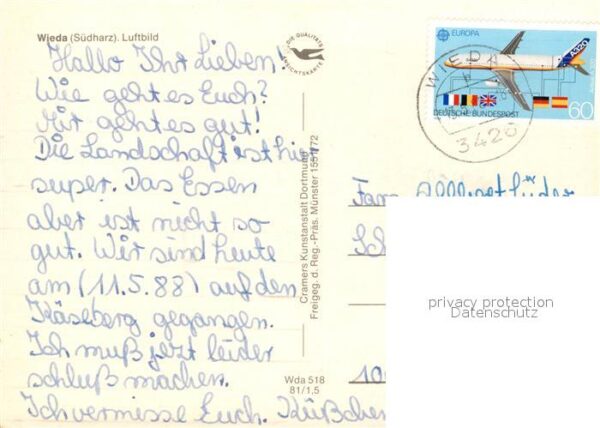 Wieda (Südharz). Luftbild
DIE QUALITÄTS
ANSICHTSKARTE
Hallo Ihr Lieben!
Wie geht es Euch?
Mir geht es gut!
Die Landschaft ist hier
super. Das Essen
aber ist nicht so
gut. Wir sind heute
am (11.5.88) auf den
Käseberg gegangen.
Ich muß jetzt leider
schluß machen.
Ich vermisse Euch. Küßchen
Cramers Kunstanstalt Dortmund
Freigeg. d. Reg.-Präs. Münster 1551/72
Wda 518
81/1,5
EUROPA
A320
60
DEUTSCHE BUNDESPOST
WIEDA
3426
Fam.
privacy protection
Datenschutz